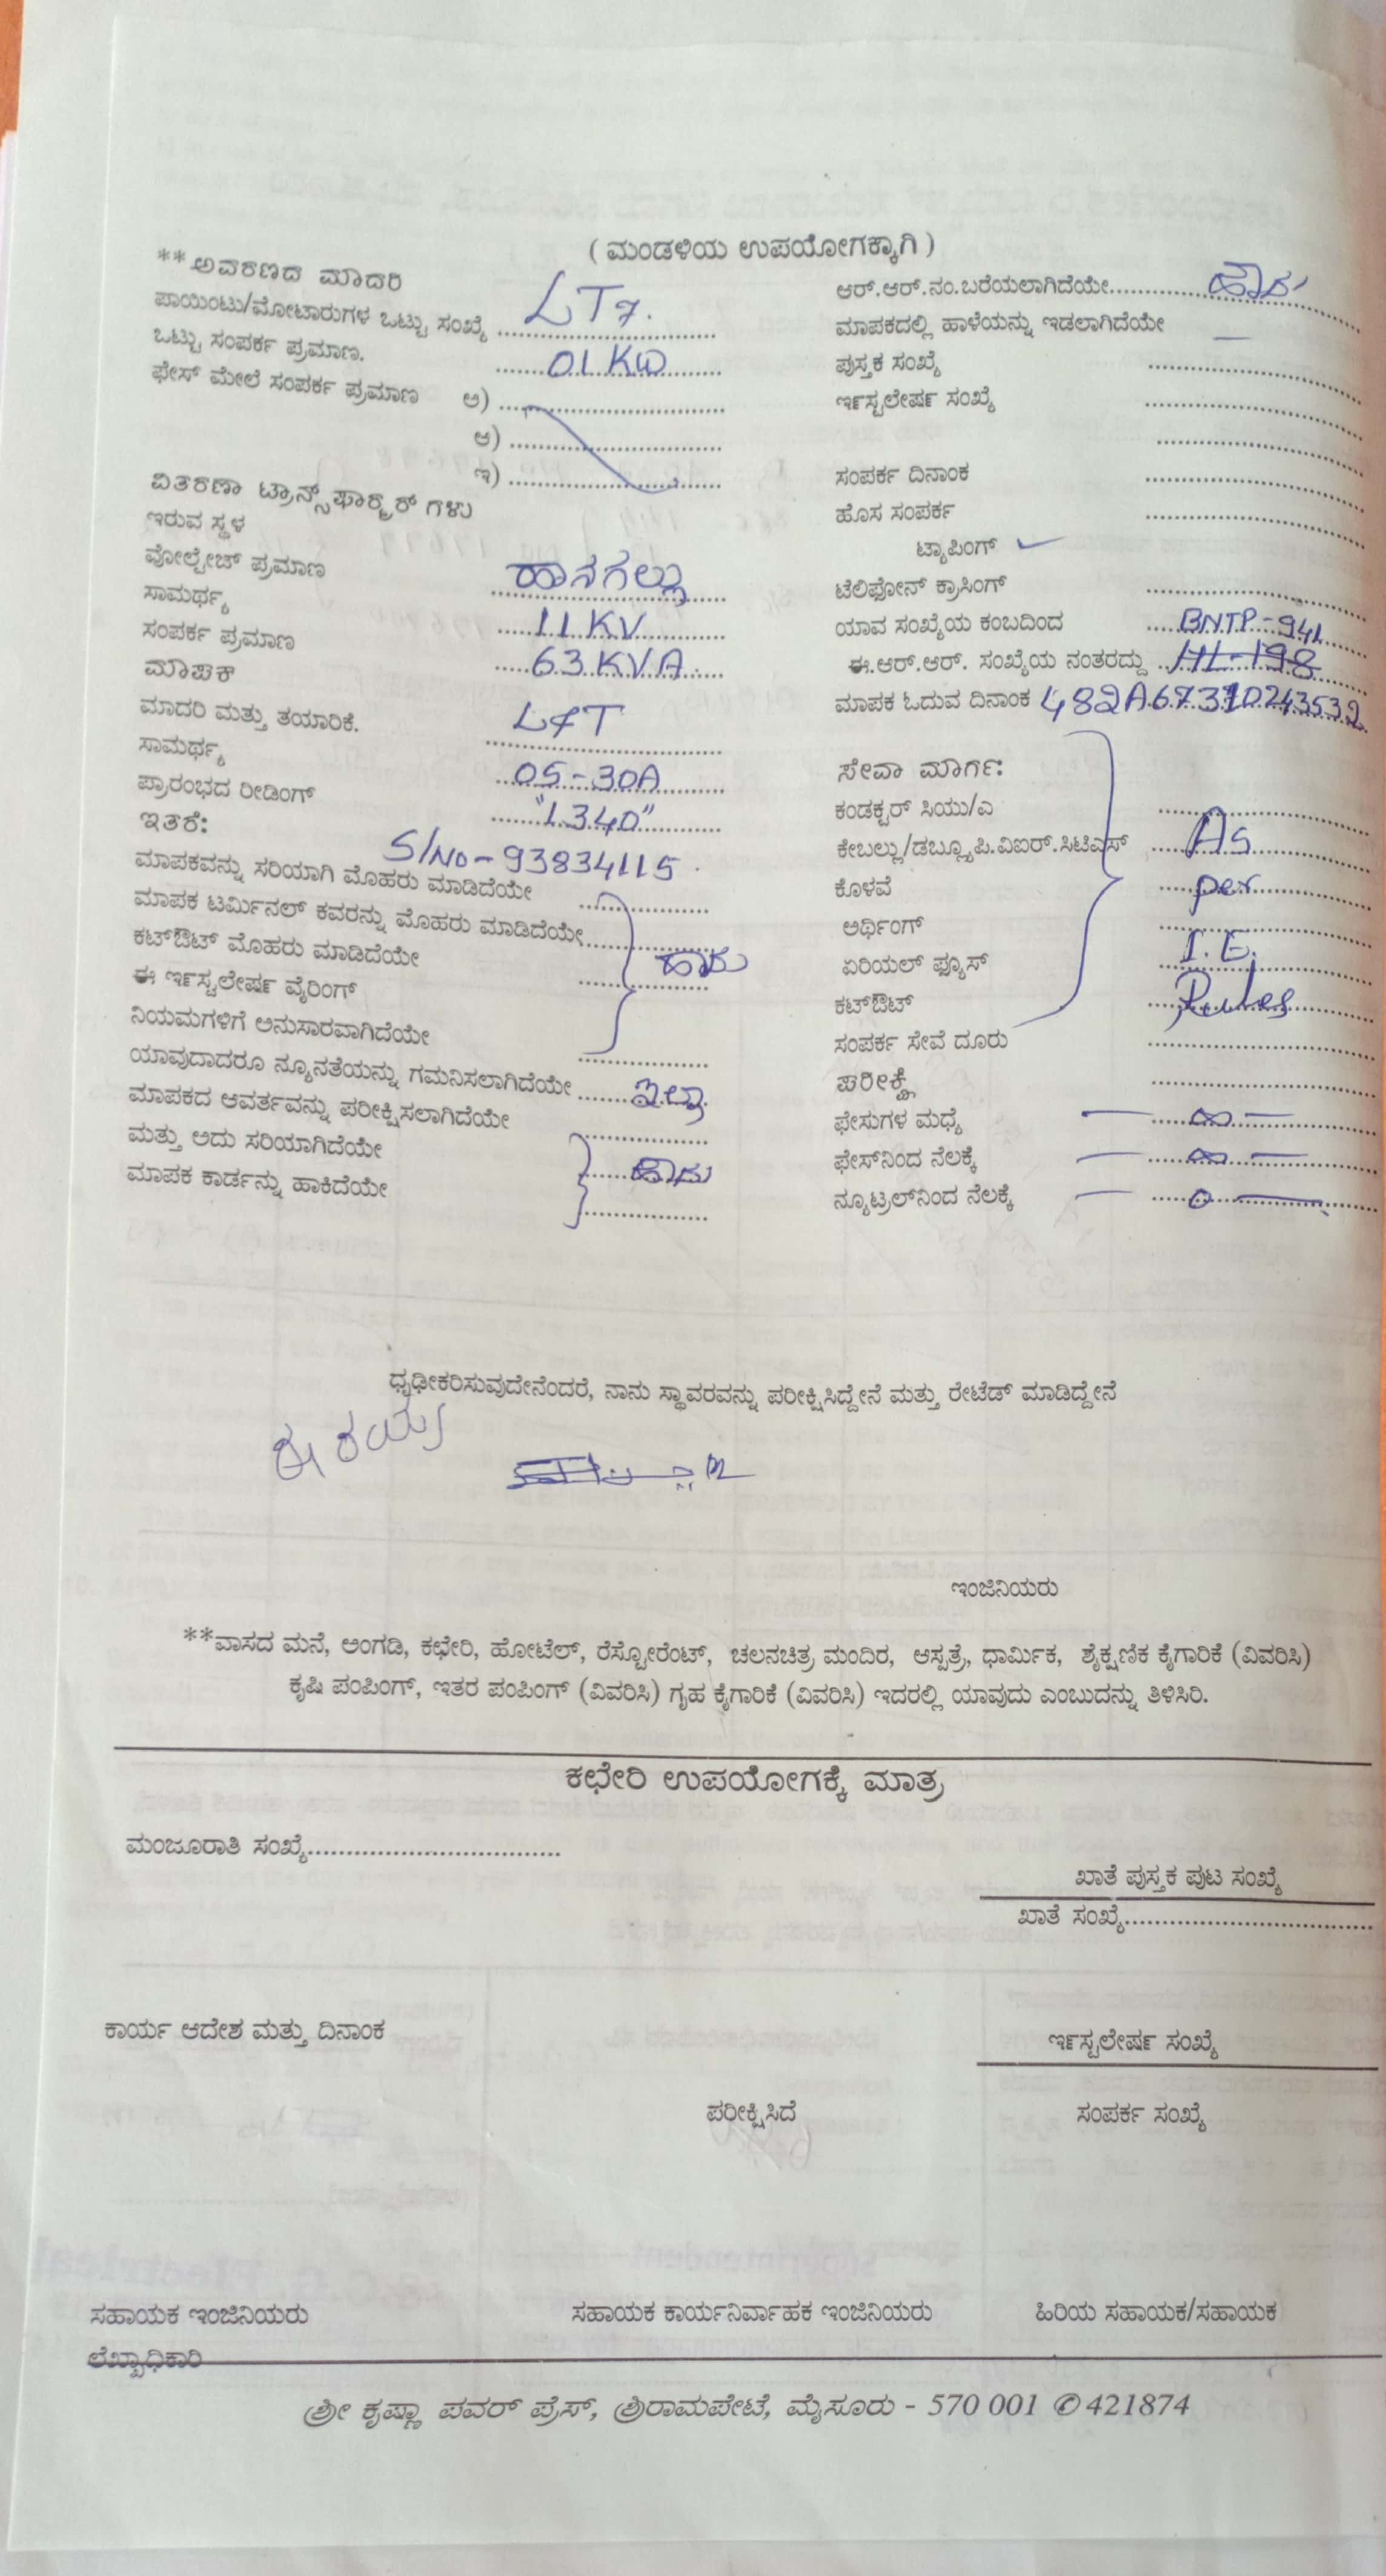 ( ಮಂಡಳಿಯ ಉಪಯೋಗಕ್ಕಾಗಿ )
**ಅವರಣದ ಮಾದರಿ
ಪಾಯಿಂಟು/ಮೋಟಾರುಗಳ ಒಟ್ಟು ಸಂಖ್ಯೆ LT7.
ಒಟ್ಟು ಸಂಪರ್ಕ ಪ್ರಮಾಣ. 01 KW
ಫೇಸ್ ಮೇಲೆ ಸಂಪರ್ಕ ಪ್ರಮಾಣ ಅ)
ಆ)
ಇ)
ವಿತರಣಾ ಟ್ರಾನ್ಸ್‌ಫಾರ್ಮರ್ ಗಳು
ಇರುವ ಸ್ಥಳ
ವೋಲ್ಟೇಜ್ ಪ್ರಮಾಣ ಹಾನಗಲ್ಲು
ಸಾಮರ್ಥ್ಯ
ಸಂಪರ್ಕ ಪ್ರಮಾಣ 11 KV
ಮಾಪಕ 63 KVA
ಮಾದರಿ ಮತ್ತು ತಯಾರಿಕೆ. L&T
ಸಾಮರ್ಥ್ಯ
ಪ್ರಾರಂಭದ ರೀಡಿಂಗ್ 05-30A
ಇತರೆ: "1340"
S/No-93834115
ಮಾಪಕವನ್ನು ಸರಿಯಾಗಿ ಮೊಹರು ಮಾಡಿದೆಯೇ
ಮಾಪಕ ಟರ್ಮಿನಲ್ ಕವರನ್ನು ಮೊಹರು ಮಾಡಿದೆಯೇ
ಕಟ್‌ಔಟ್ ಮೊಹರು ಮಾಡಿದೆಯೇ ಹಾದು
ಈ ಇನ್ಸ್ಟಲೇಷನ್ ವೈರಿಂಗ್
ನಿಯಮಗಳಿಗೆ ಅನುಸಾರವಾಗಿದೆಯೇ
ಯಾವುದಾದರೂ ನ್ಯೂನತೆಯನ್ನು ಗಮನಿಸಲಾಗಿದೆಯೇ ಇಲ್ಲಾ
ಮಾಪಕದ ಆವರ್ತವನ್ನು ಪರೀಕ್ಷಿಸಲಾಗಿದೆಯೇ
ಮತ್ತು ಅದು ಸರಿಯಾಗಿದೆಯೇ
ಮಾಪಕ ಕಾರ್ಡನ್ನು ಹಾಕಿದೆಯೇ ಹಾದು
ಆರ್.ಆರ್.ನಂ.ಬರೆಯಲಾಗಿದೆಯೇ
ಮಾಪಕದಲ್ಲಿ ಹಾಳೆಯನ್ನು ಇಡಲಾಗಿದೆಯೇ —
ಪುಸ್ತಕ ಸಂಖ್ಯೆ
ಇನ್ಸ್ಟಲೇಷನ್ ಸಂಖ್ಯೆ
ಸಂಪರ್ಕ ದಿನಾಂಕ
ಹೊಸ ಸಂಪರ್ಕ
ಟ್ಯಾಪಿಂಗ್ ✓
ಟೆಲಿಫೋನ್ ಕ್ರಾಸಿಂಗ್
ಯಾವ ಸಂಖ್ಯೆಯ ಕಂಬದಿಂದ BNTP-941
ಈ.ಆರ್.ಆರ್. ಸಂಖ್ಯೆಯ ನಂತರದ್ದು HL-198
ಮಾಪಕ ಓದುವ ದಿನಾಂಕ 482A67310243532
ಸೇವಾ ಮಾರ್ಗ:
ಕಂಡಕ್ಟರ್ ಸಿಯು/ಎ
ಕೇಬಲ್ಲು/ಡಬ್ಲ್ಯೂಪಿ.ವಿಐರ್.ಸಿಟಿಎಸ್ As
ಕೊಳವೆ per
ಅರ್ಥಿಂಗ್
ಏರಿಯಲ್ ಫ್ಯೂಸ್ I.E.
ಕಟ್‌ಔಟ್ Rules
ಸಂಪರ್ಕ ಸೇವೆ ದೂರು
ಪರೀಕ್ಷೆ
ಫೇಸುಗಳ ಮಧ್ಯೆ — ∞ —
ಫೇಸ್‌ನಿಂದ ನೆಲಕ್ಕೆ — ∞ —
ನ್ಯೂಟ್ರಲ್‌ನಿಂದ ನೆಲಕ್ಕೆ — 0 —
ಧೃಢೀಕರಿಸುವುದೇನೆಂದರೆ, ನಾನು ಸ್ಥಾವರವನ್ನು ಪರೀಕ್ಷಿಸಿದ್ದೇನೆ ಮತ್ತು ರೇಟೆಡ್ ಮಾಡಿದ್ದೇನೆ
ಈರಯ್ಯ
ಇಂಜಿನಿಯರು
**ವಾಸದ ಮನೆ, ಅಂಗಡಿ, ಕಛೇರಿ, ಹೋಟೆಲ್, ರೆಸ್ಟೋರೆಂಟ್, ಚಲನಚಿತ್ರ ಮಂದಿರ, ಆಸ್ಪತ್ರೆ, ಧಾರ್ಮಿಕ, ಶೈಕ್ಷಣಿಕ ಕೈಗಾರಿಕೆ (ವಿವರಿಸಿ)
ಕೃಷಿ ಪಂಪಿಂಗ್, ಇತರ ಪಂಪಿಂಗ್ (ವಿವರಿಸಿ) ಗೃಹ ಕೈಗಾರಿಕೆ (ವಿವರಿಸಿ) ಇದರಲ್ಲಿ ಯಾವುದು ಎಂಬುದನ್ನು ತಿಳಿಸಿರಿ.
ಕಛೇರಿ ಉಪಯೋಗಕ್ಕೆ ಮಾತ್ರ
ಮಂಜೂರಾತಿ ಸಂಖ್ಯೆ
ಖಾತೆ ಪುಸ್ತಕ ಪುಟ ಸಂಖ್ಯೆ
ಖಾತೆ ಸಂಖ್ಯೆ
ಕಾರ್ಯ ಆದೇಶ ಮತ್ತು ದಿನಾಂಕ
ಇನ್ಸ್ಟಲೇಷನ್ ಸಂಖ್ಯೆ
ಪರೀಕ್ಷಿಸಿದೆ ಸಂಪರ್ಕ ಸಂಖ್ಯೆ
ಸಹಾಯಕ ಇಂಜಿನಿಯರು ಸಹಾಯಕ ಕಾರ್ಯನಿರ್ವಾಹಕ ಇಂಜಿನಿಯರು ಹಿರಿಯ ಸಹಾಯಕ/ಸಹಾಯಕ
ಲೆಖ್ಖಾಧಿಕಾರಿ
ಶ್ರೀ ಕೃಷ್ಣಾ ಪವರ್ ಪ್ರೆಸ್, ಶ್ರೀರಾಮಪೇಟೆ, ಮೈಸೂರು - 570 001 ✆ 421874